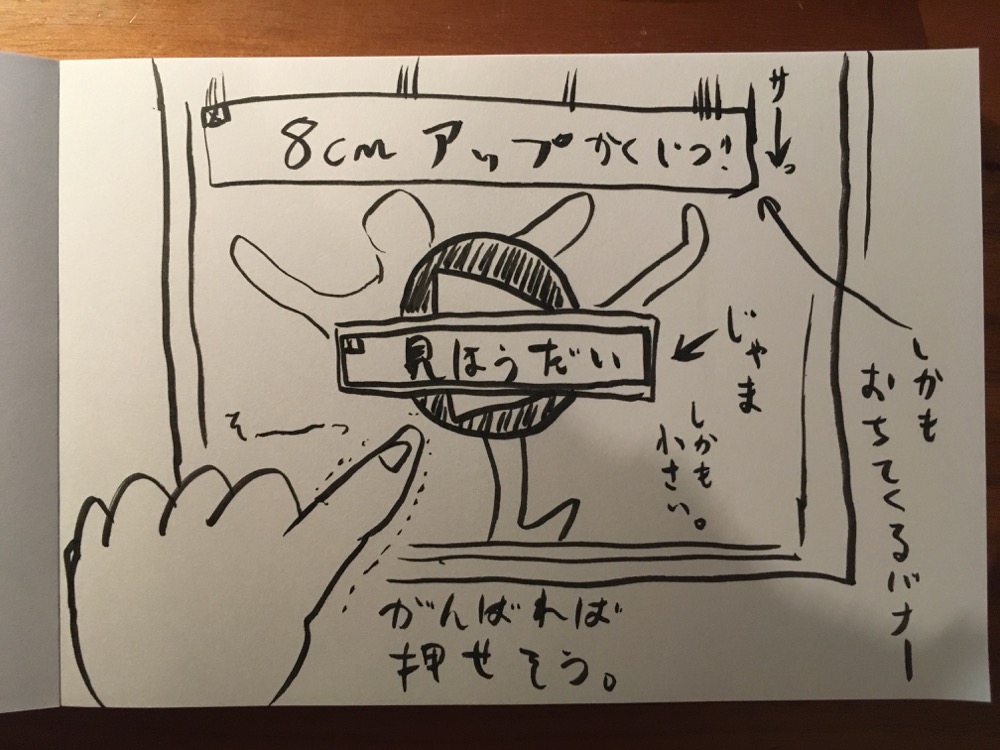 サーっ
8cm アップかくじつ!!
x
見ほうだい
x
じゃま
しかも
小さい。
しかも
おちてくるバナー
そーっ
がんばれば
押せそう。